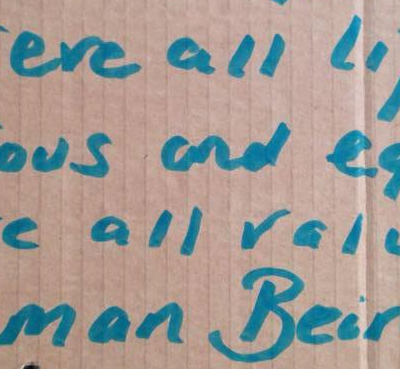 ere all li
ous and eq
e all valu
man Bein